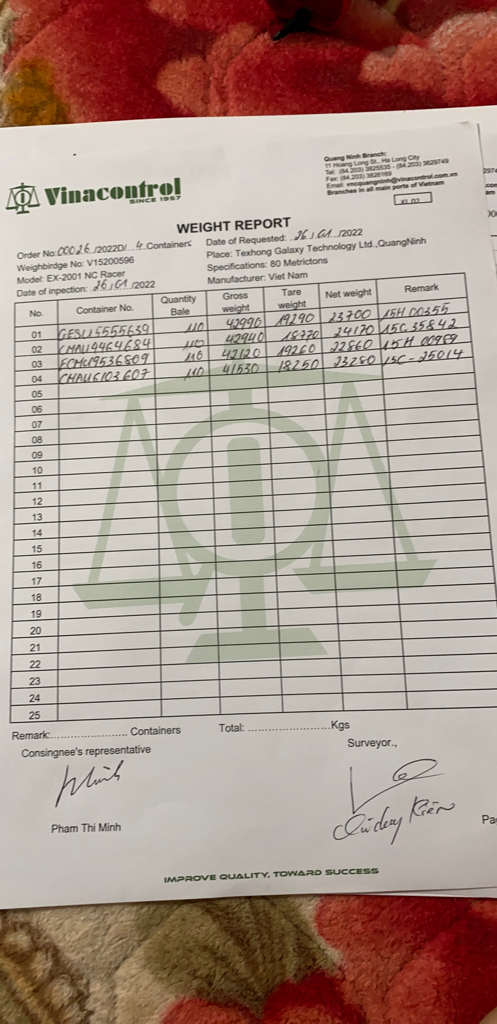 Quang Ninh Branch:
11 Hoang Long St., Ha Long City
Tel: (84.203) 3825535 - (84.203) 3629749
Fax: (84.203) 3826169
Email: vmcquangninh@vinacontrol.com.vn
Branches in all main ports of Vietnam
Vinacontrol
SINCE 1957
WEIGHT REPORT
Order No: 00026 /2022D/... 4. Containers
Date of Requested: 26 / 01 /2022
Weighbirdge No: V15200596
Place: Texhong Galaxy Technology Ltd.,QuangNinh
Model: EX-2001 NC Racer
Specifications: 80 Metrictons
Date of inpection: 26 / 01 /2022
Manufacturer: Viet Nam
No. Container No. Quantity Bale Gross weight Tare weight Net weight Remark
01 GESU5555639 110 42990 19290 23700 15H 00355
02 CMAU4464684 110 42940 18770 24170 15C 35842
03 110 42120 19260 22860 15H 00989
04 CHAU6103607 110 41530 18250 23280 15C-25014
05
06
07
08
09
10
11
12
13
14
15
16
17
18
19
20
21
22
23
24
25
Remark:........................ Containers Total: ........................Kgs
Consingnee's representative
Surveyor.,
Pham Thi Minh
IMPROVE QUALITY, TOWARD SUCCESS